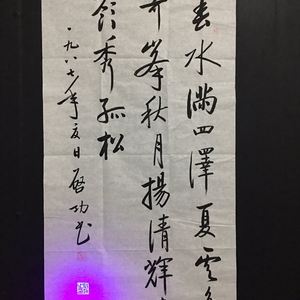 春水滿四澤夏雲多
奇峯秋月揚清輝冬
嶺秀孤松
一九八七年夏日啟功書